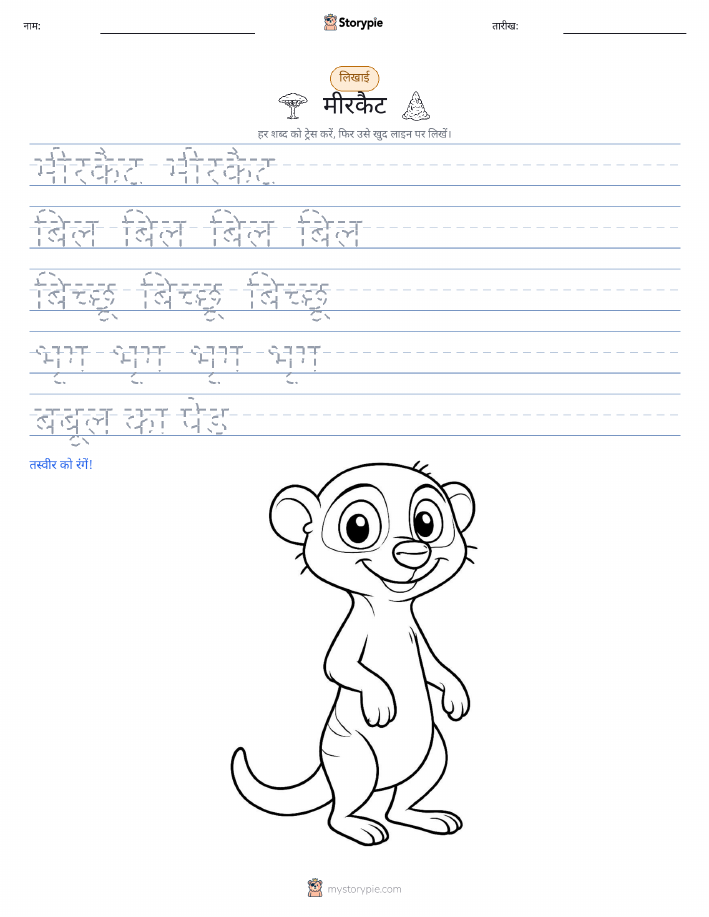 नाम:
Storypie
तारीख:
लिखाई
मीरकैट
हर शब्द को ट्रेस करें, फिर उसे खुद लाइन पर लिखें।
मीरकैट मीरकैट
बिल बिल बिल बिल
बिच्छू बिच्छू बिच्छू
भृग भृग भृग भृग
बबूल का पेड
तस्वीर को रंगें!
mystorypie.com